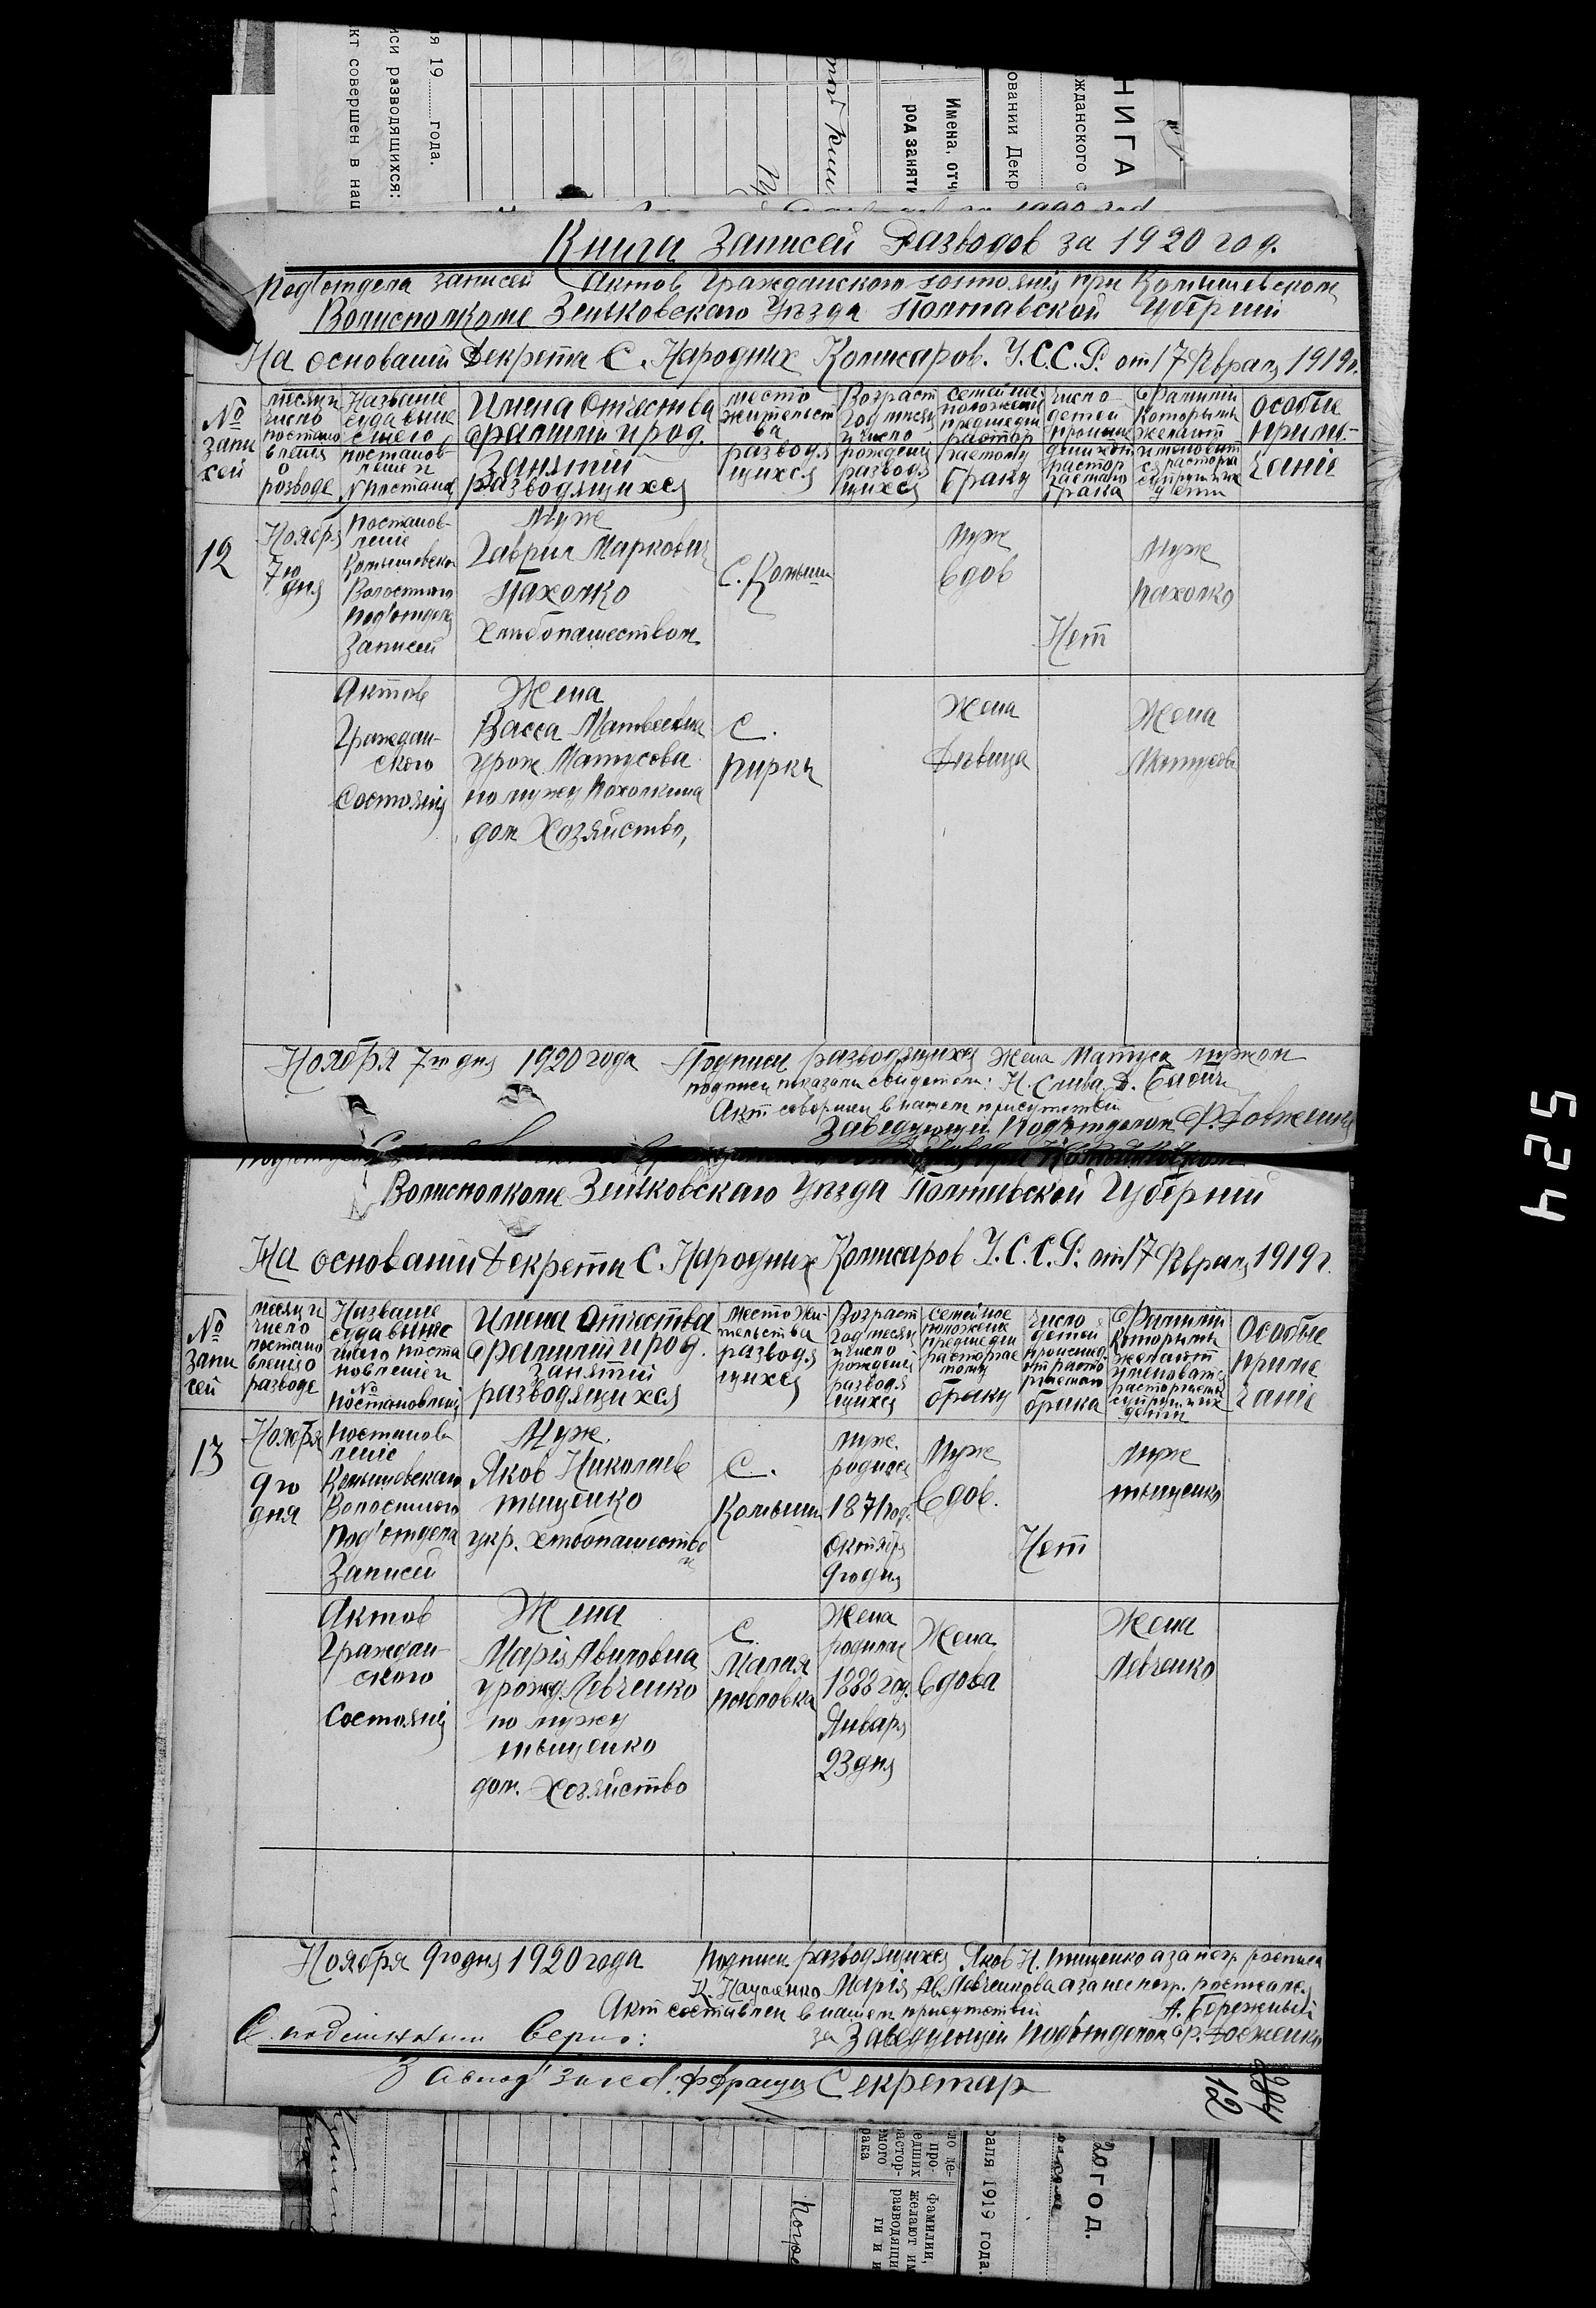 Книга Записей Разводов за 1920 год.
Подъотдела записей Актов Гражданского состоянія при Комышевском
Волисполкоме Зеньковскаго Уезда Полтавской Губерніи
На основаніи Декрета С. Народних Комисаров. У.С.С.Р. от 17 Февраля 1919г.
№ запи сей
месяц и число постано вленія о розводе
Названіе суда выне сшего постанов ления и № постанов
Имена Отчества Фамиліи и род. Занятий разводящихся
место жительст ва разводя щихся
Возраст год месяц и число рожденій разводя щихся
семейное положение предшедш растор гаемому браку
число детей
Фамиліи Которыми желают
Особые приме- чаніе
12
Ноября 7го дня
Постанов- леніе Комышевского Волостного Подъотдела Записей
Муж
Гаврил Маркович
Пахолко
Хлебопашеством
С. Комыши
муж
вдов
Нет
муж
пахолко
Актов
Граждан-
ского
Состояній
Жена
Васса Матвеевна
урож. Матусова
по мужу Пахолкина
дом Хозяйство,
С.
пирки
Жена
Девица
Жена
Матусова
Ноября 7го дня 1920 года Подписи разводящихся жена Матуса
подписи показали свидетели: Н. Слива. Д. Бабич
Акт совершен в нашем присутствіи
Заведующій Подъотделом Ф. Довженко
Волисполкоме Зеньковскаго Уезда Полтавской Губерніи
На основаніи Декрета С. Народних Комисаров У.С.С.Р. от 17 Февраля 1919г.
№ запи сей
месяц и число постано вления о разводе
Названіе суда вынес шаго поста новления и № постановленія
Имена Отчества Фамилий и род. Занятий разводящихся
Место Жи- тельства разводя щихся
Возраст год месяц и число рождений разводя щихся
семейное положение предшедш расторгае мому браку
число детей происшед. от расто ргаемаго брака
Фамилій Которыми желают именоват. расторгаемые супруги и их дети
Особые приме чаніе
13
Ноября
9го
дня
Постанов ленiе Комышевскаго Волостного Подъотдела Записей
Муж.
Яков Николаев
тищенко
укр. хлебопашество
С.
Комыши
муж. родился 1871 год. Октября 9го дня
Муж
вдов.
Нет
муж
тищенко
Актов
Граждан-
ского
Состояній
Жена
Марія Авиловна
урожд. Левченко
по мужу
тищенко
дом. Хозяйство
С.
Малая
павловка
Жена
родилас
1888 год.
Январ
23 дня
Жена
вдова
Жена
Левченко
Ноября 9го дня 1920 года Подписи разводящихся Яков Н. тищенко а за негр. росписал
К. Науменко Марія Ав. Левченкова а за нее негр. росписалс
Акт составлен в нашем присутствій А. Бережный
С подлинным верно: за Заведующій Подъотделом Ф. Довженко
Секретар
12
524
НИГА
Имена, отч
род заняти
овании Декр
жданского с
я 19 года.
иси разводящихся:
кт совершен в наш
20 год.
раля 1919 года.
Фамилии,
желают им
разводящи
ги и и
ло де-
про-
едших
астор-
емого
рака